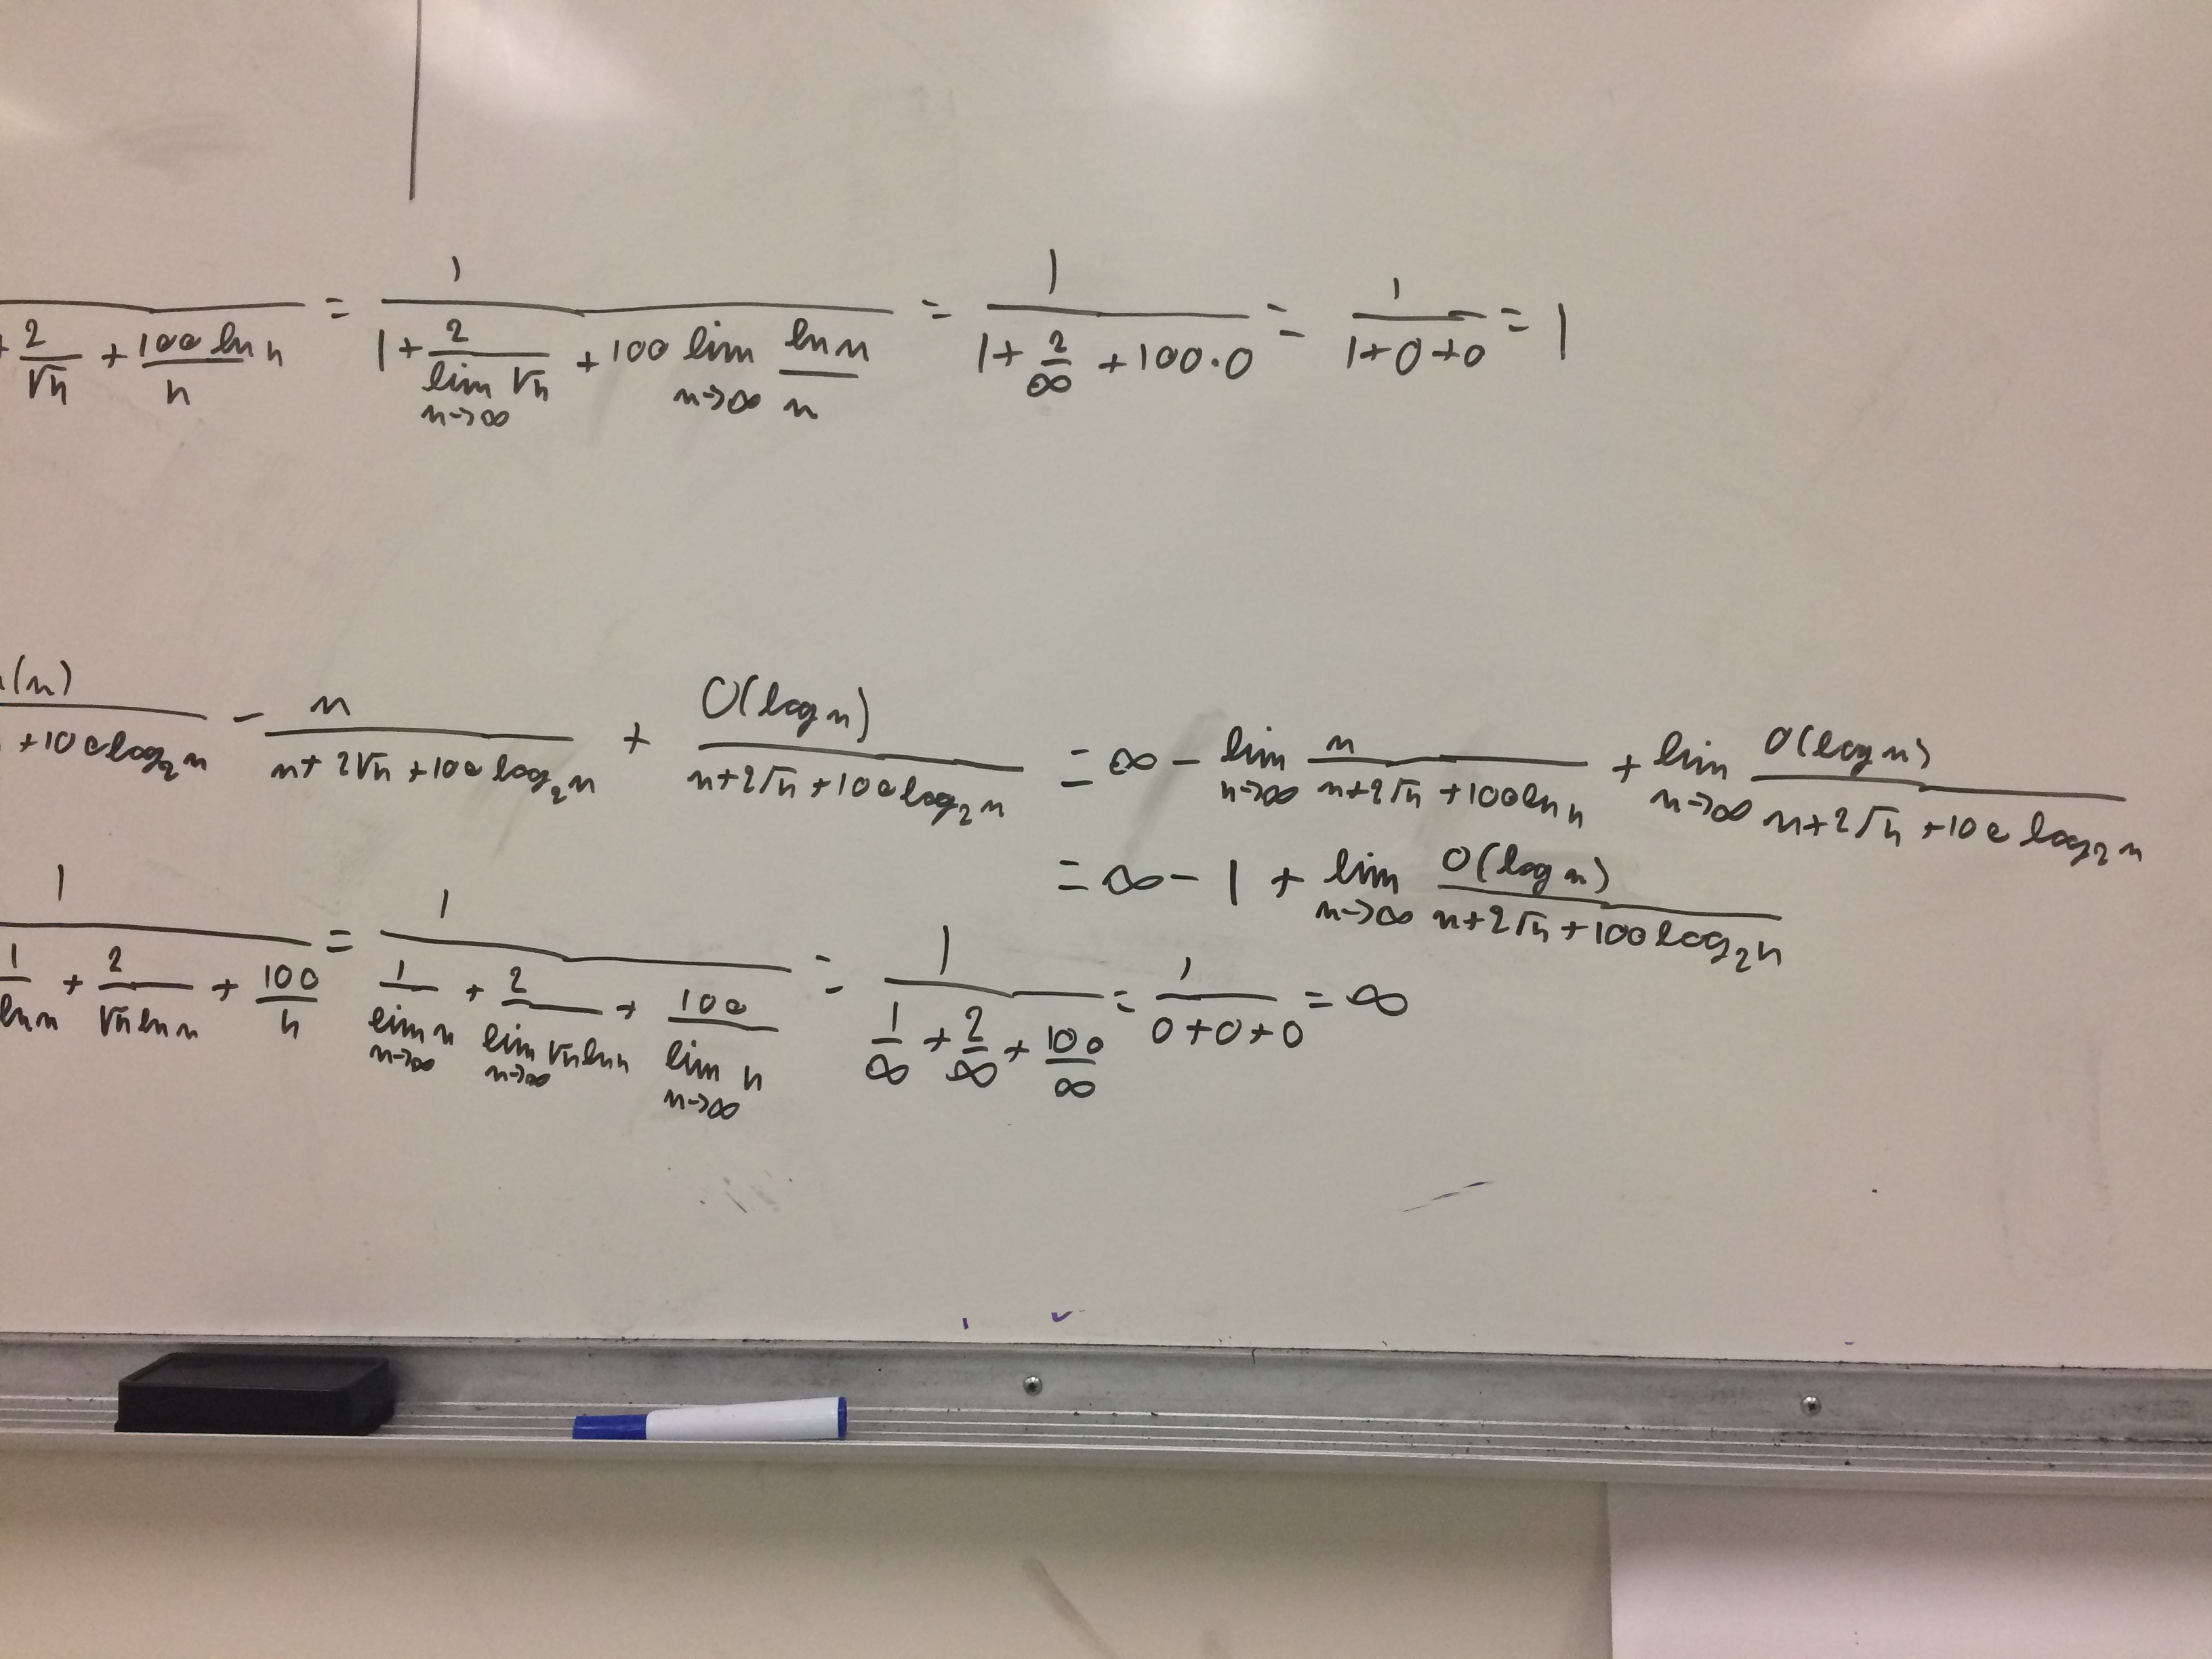 + 2/√n + 100 ln n/n = 1/(1 + 2/(lim n→∞ √n) + 100 lim n→∞ ln n/n) = 1/(1 + 2/∞ + 100·0) = 1/(1+0+0) = 1
(n)/(+100 log₂ n) − n/(n + 2√n + 100 log₂ n) + O(log n)/(n + 2√n + 100 log₂ n) = ∞ − lim n→∞ n/(n + 2√n + 100 ln n) + lim n→∞ O(log n)/(n + 2√n + 100 log₂ n)
= ∞ − 1 + lim n→∞ O(log n)/(n + 2√n + 100 log₂ n)
1/(1/ln n + 2/(√n ln n) + 100/n) = 1/(1/(lim n→∞ n) + 2/(lim n→∞ √n ln n) + 100/(lim n→∞ n)) = 1/(1/∞ + 2/∞ + 100/∞) = 1/(0+0+0) = ∞